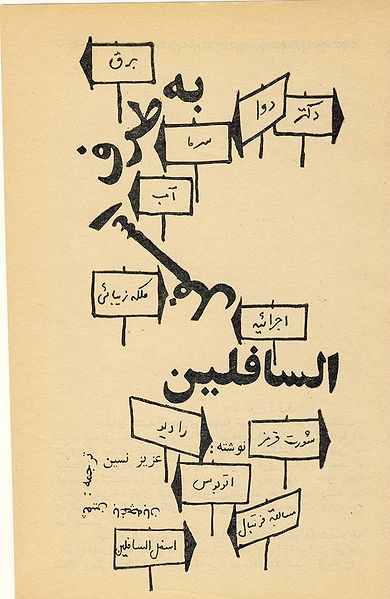 برق
به طرف
دکتر
دوا
سرما
آب
اسفل
ملکه زیبائی
اجرائیه
السافلین
رادیو
شورت قرمز
نوشته:
عزیز نسین
اتوبوس
ترجمه: ثمین باغچه‌بان
مسابقه فوتبال
اسفل السافلین